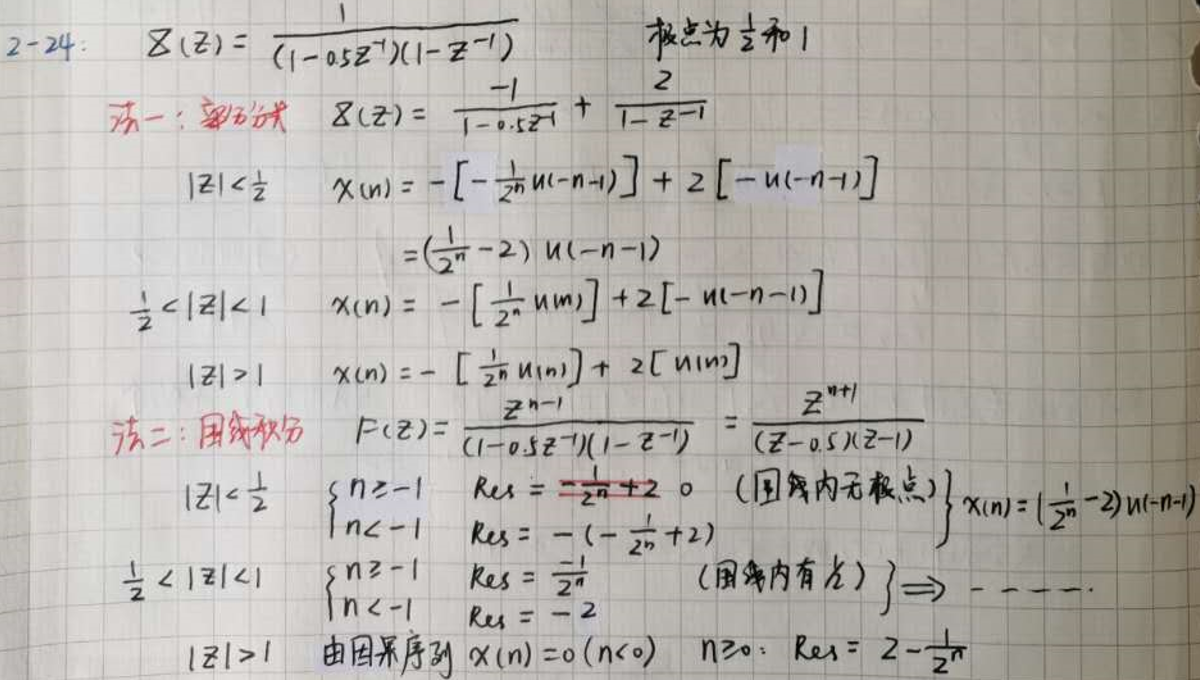 2-24: X(Z) = 1/((1-0.5Z⁻¹)(1-Z⁻¹)) 极点为 1/2 和 1
法一：部分分式 X(Z) = -1/(1-0.5Z⁻¹) + 2/(1-Z⁻¹)
|Z|<1/2 x(n) = -[-1/2ⁿ u(-n-1)] + 2[-u(-n-1)]
=(1/2ⁿ-2) u(-n-1)
1/2<|Z|<1 x(n) = -[1/2ⁿ u(n)] + 2[-u(-n-1)]
|Z|>1 x(n) = -[1/2ⁿ u(n)] + 2[u(n)]
法二：围线积分 F(Z) = Zⁿ⁻¹/((1-0.5Z⁻¹)(1-Z⁻¹)) = Zⁿ⁺¹/((Z-0.5)(Z-1))
|Z|<1/2 { n≥-1 Res = -1/2ⁿ+2 0 (围线内无极点) } x(n)=(1/2ⁿ-2)u(-n-1)
n<-1 Res = -(-1/2ⁿ+2)
1/2<|Z|<1 { n≥-1 Res = -1/2ⁿ (围线内有点) } ⇒ -----.
n<-1 Res = -2
|Z|>1 由因果序列 x(n)=0 (n<0) n≥0: Res = 2-1/2ⁿ